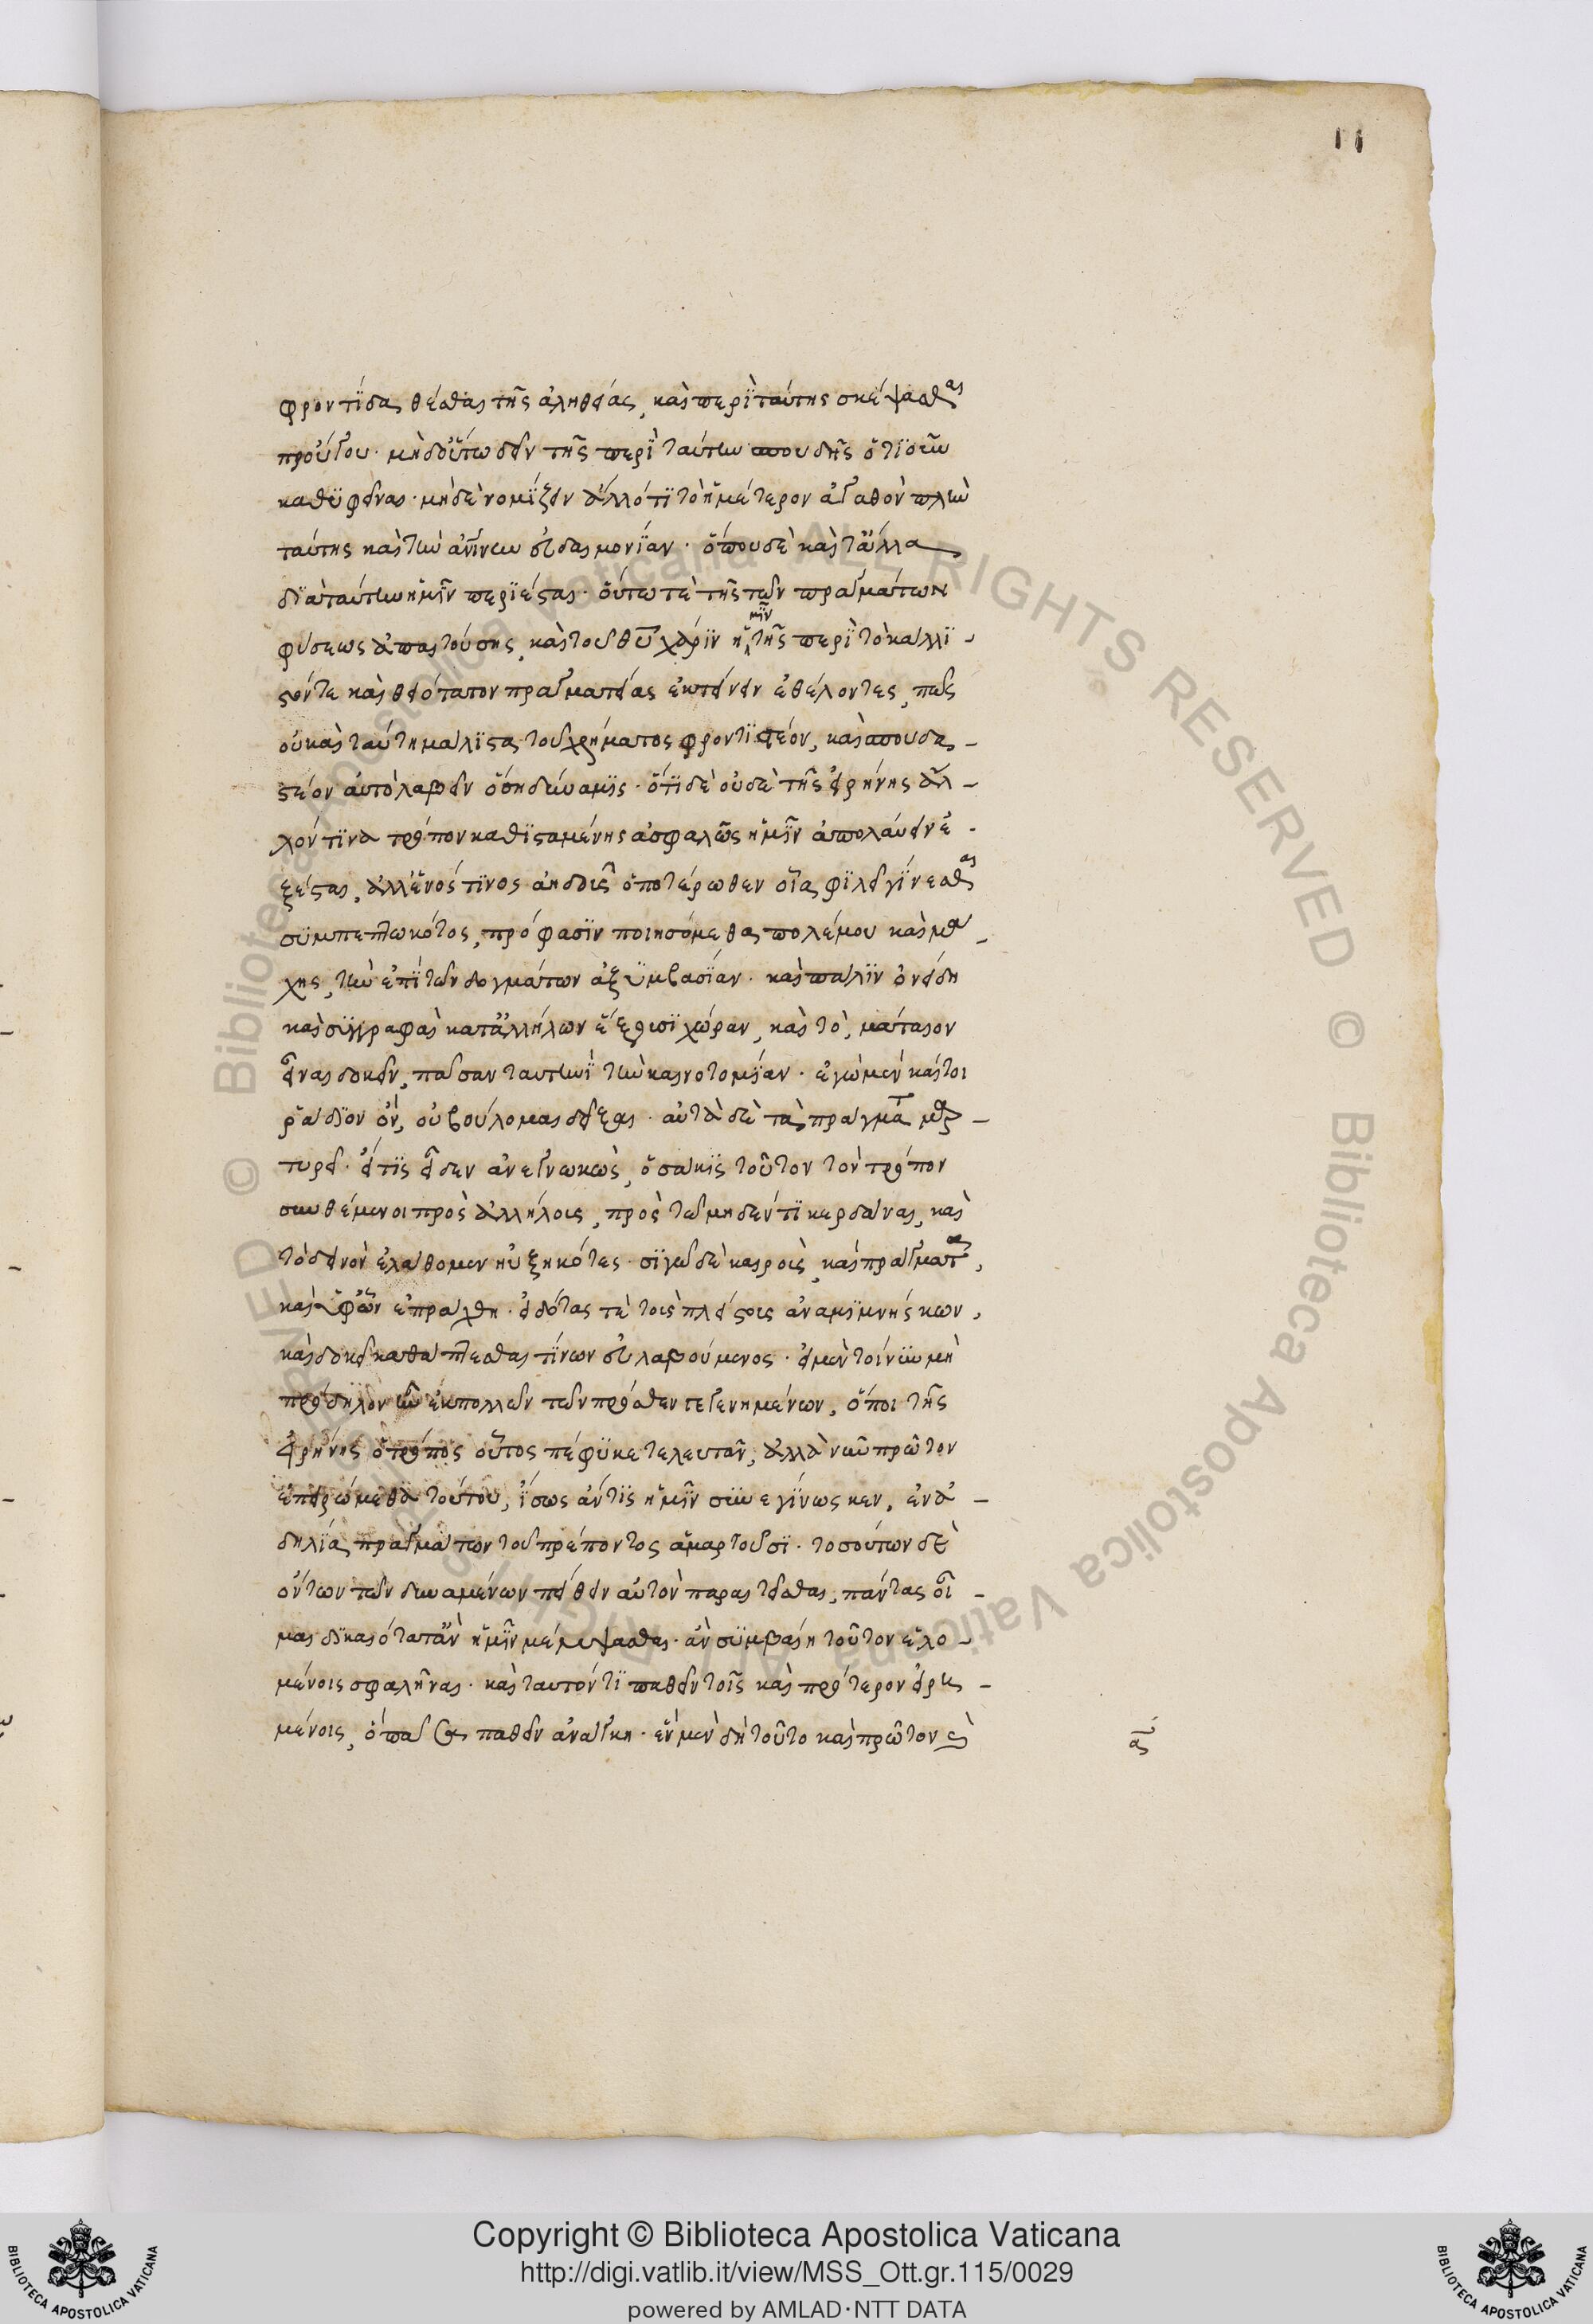 11
φροντίδα θέσθαι τῆς ἀληθείας, καὶ περὶ ταύτης σκέψασθαι
πρὸ τοῦ. μηδ' οὕτω δεῖν τῆς περὶ ταύτην σπουδῆς ὁτιοῦν
καθυφεῖναι. μηδὲ νομίζειν ἄλλό τι τὸ ἡμέτερον ἀγαθὸν πλὴν
ταύτης καὶ τὴν ἀγήρων εὐδαιμονίαν. ὅπου δὲ καὶ τἄλλα
διὰ ταύτην ἡμῖν περιέσται. οὕτω τε τῆς τῶν πραγμάτων
φύσεως ἀπαιτούσης, καὶ τοῦ θεοῦ χάριν ἡμῖν τῆς περὶ τὸ καλλι-
στόν τε καὶ θειότατον πραγματείας ἐκτείνειν ἐθέλοντες, πῶς
οὐ καὶ ταύτῃ μάλιστα τοῦ χρήματος φροντιστέον, καὶ σπουδα-
στέον αὐτὸ λαβεῖν ὅση δύναμις. ὅτι δὲ οὐδὲ τῆς εἰρήνης ἄλ-
λόν τινα τρόπον καθισταμένης ἀσφαλῶς ἡμῖν ἀπολαύειν ἐ-
ξέσται, ἀλλ' ἑνός τινος ἀηδοῦς ὁποτέρωθεν οἷα φιλεῖ γίνεσθαι
συμπεπτωκότος, πρόφασιν ποιησόμεθα πολέμου καὶ μά-
χης, τὴν ἐπὶ τῶν δογμάτων ἀξυμβασίαν. καὶ πάλιν ὀνείδη
καὶ συγγραφαὶ κατ' ἀλλήλων ἕξουσι χώραν, καὶ τὸ, μάταιον
εἶναι δοκεῖν, πᾶσαν ταυτηνὶ τὴν καινοτομίαν. ἐγὼ μὲν καίτοι
ῥᾴδιον ὄν, οὐ βούλομαι δεῖξαι. αὐτὰ δὲ τὰ πράγματα μαρ-
τυρεῖ. εἴ τις εἶδεν ἀνεγνωκὼς, ὁσάκις τοῦτον τὸν τρόπον
συνθέμενοι πρὸς ἀλλήλους, πρὸς τῶ μηδέν τι κερδᾶναι, καὶ
τὸ δεινὸν ἐλάθομεν ηὐξηκότες. σιγῶ δὲ καιροὺς, καὶ πράγματα,
καὶ ἀφ' ὧν ἐπράχθη. εἰδότας τὲ τοὺς πλείστους ἀναμιμνήσκων,
καὶ δοκεῖ καθάπτεσθαι τίνων εὐλαβούμενος. εἰ μὲν τοίνυν μὴ
πρόδηλον ἦν ἐκ πολλῶν τῶν πρόσθεν γεγενημένων, ὅποι τῆς
εἰρήνης ὁ τρόπος οὗτος πέφυκε τελευτᾶν, ἀλλὰ νῦν πρῶτον
ἐπειρώμεθα τούτου, ἴσως ἄν τις ἡμῖν συνεγίνωσκεν, ἐν ἀ-
δηλία πραγμάτων τοῦ πρέποντος ἁμαρτοῦσι. τοσούτων δὲ
ὄντων τῶν δυναμένων πείθειν αὐτὸν παραιτεῖσθαι, πάντας οἶ-
μαι δικαιότατ' ἂν ἡμῖν μέμψασθαι. ἂν συμβαίη τοῦτον ἑλο-
μένοις σφαλῆναι. καὶ ταυτόν τι παθεῖν τοῖς καὶ πρότερον εἰρη-
μένοις, ὃ πᾶσα παθεῖν ἀνάγκη. ἓν μὲν δὴ τοῦτο καὶ πρῶτον καὶ
Copyright © Biblioteca Apostolica Vaticana
http://digi.vatlib.it/view/MSS_Ott.gr.115/0029
powered by AMLAD·NTT DATA
BIBLIOTECA APOSTOLICA VATICANA
BIBLIOTECA APOSTOLICA VATICANA